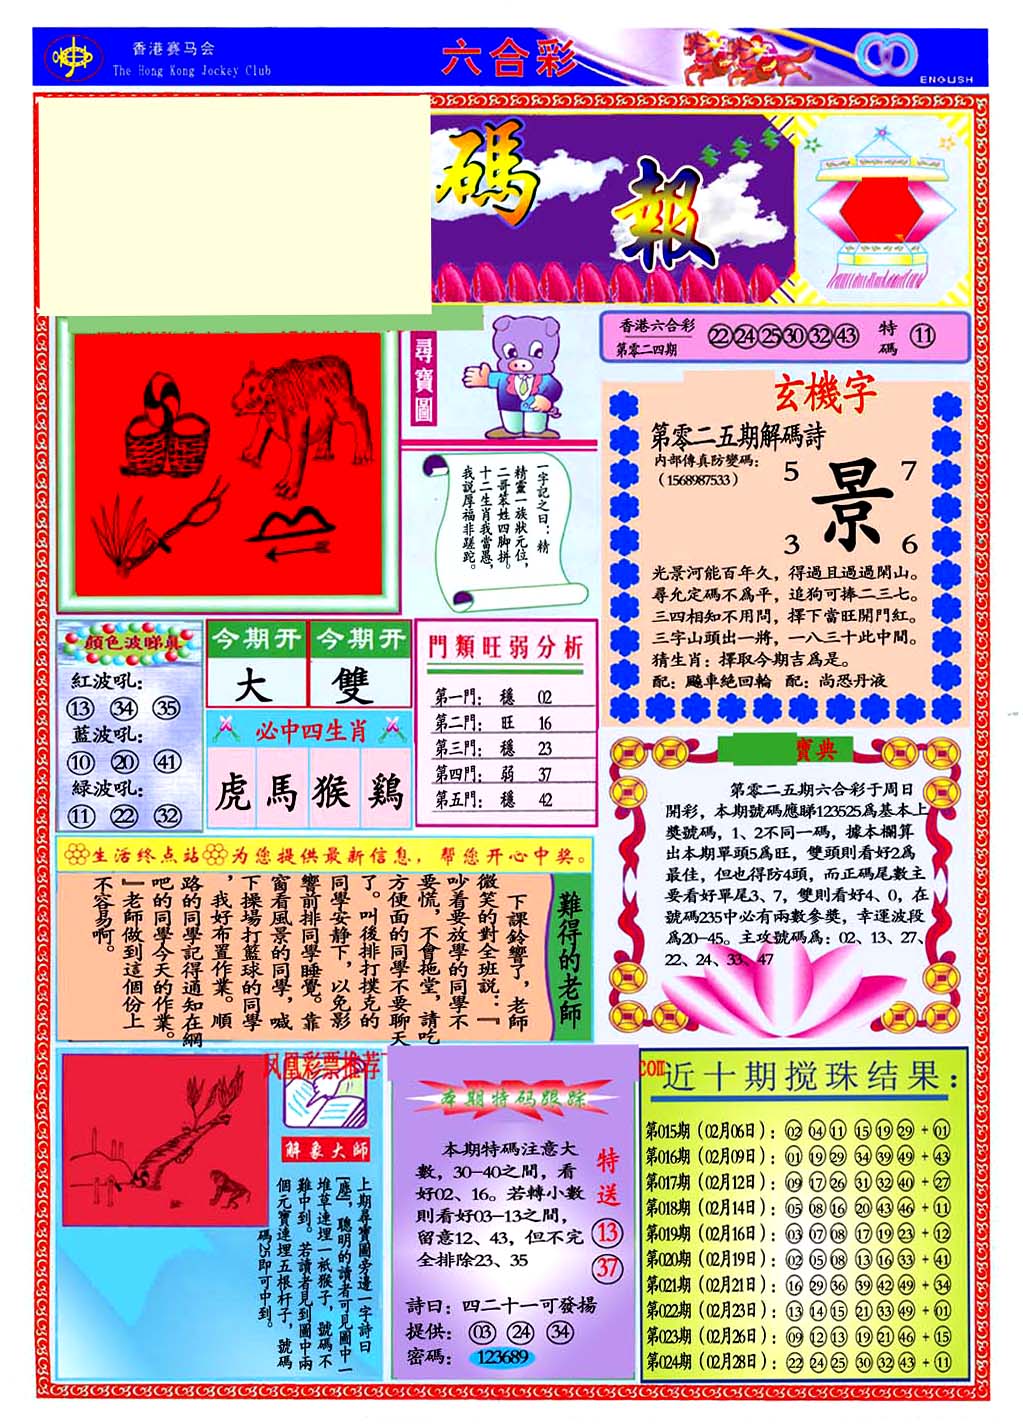 香港赛马会
The Hong Kong Jockey Club
六合彩
ENGLISH
碼報
尋寶圖
香港六合彩
第零二四期
22 24 25 30 32 43
特碼
11
一字記之曰：精
精靈一族狀元位，
二哥笨姓四脚拼。
十二生肖我當愚，
我説厚福非蹉跎。
玄機字
第零二五期解碼詩
内部傳真防變碼：
（1568987533）
5 7
景
3 6
光景河能百年久，得過且過過閑山。
尋允定碼不爲平，追狗可捧二三七。
三四相知不用問，擇下當旺開門紅。
三字山頭出一將，一八三十此中間。
猜生肖：擇取今期吉爲是。
配：飈車絕回輪 配：尚恐丹液
顏色波睇真
紅波吼：
13 34 35
藍波吼：
10 20 41
緑波吼：
11 22 32
今期开 今期开
大 雙
必中四生肖
虎 馬 猴 鷄
門類旺弱分析
第一門： 穩 02
第二門： 旺 16
第三門： 穩 23
第四門： 弱 37
第五門： 穩 42
寶典
第零二五期六合彩于周日
開彩，本期號碼應睇123525爲基本上
獎號碼，1、2不同一碼，據本欄算
出本期單頭5爲旺，雙頭則看好2爲
最佳，但也得防4頭，而正碼尾數主
要看好單尾3、7，雙則看好4、0，在
號碼235中必有兩數參獎，幸運波段
爲20-45。主攻號碼爲：02、13、27、
22、24、33、47
生活终点站 为您提供最新信息，帮您开心中奖。
難得的老師
下課鈴響了，老師
微笑的對全班説：『
吵着要放學的同學不
要慌，不會拖堂，請吃
方便面的同學不要聊天
了。叫後排打撲克的
同學安静下，以免影
響前排同學睡覺。靠
窗看風景的同學，喊
下操場打籃球的同學
，我好布置作業。順
路的同學記得通知在網
吧的同學今天的作業。
』老師做到這個份上
不容易啊。
凤凰彩票推荐
com
解象大師
上期尋寶圖旁邊一字詩曰
［應］，聰明的讀者可見圖中一
堆草連埋一衹猴子，號碼不
難中到。若讀者見到圖中兩
個元寶連埋五根杆子，號碼
碼25即可中到。
本期特码跟踪
本期特碼注意大
數，30-40之間，看
好02、16。若轉小數
則看好03-13之間，
留意12、43，但不完
全排除23、35
特送
13
37
詩曰：四二十一可發揚
提供： 03 24 34
密碼： 123689
近十期搅珠结果：
第015期（02月06日）：02 04 11 15 19 29 + 01
第016期（02月09日）：01 19 29 34 39 49 + 43
第017期（02月12日）：09 17 26 31 32 40 + 27
第018期（02月14日）：05 08 16 20 43 46 + 11
第019期（02月16日）：03 07 08 17 19 23 + 12
第020期（02月19日）：02 05 08 13 16 33 + 41
第021期（02月21日）：16 29 36 39 42 49 + 34
第022期（02月23日）：13 14 15 21 33 49 + 01
第023期（02月26日）：09 12 13 19 21 46 + 15
第024期（02月28日）：22 24 25 30 32 43 + 11